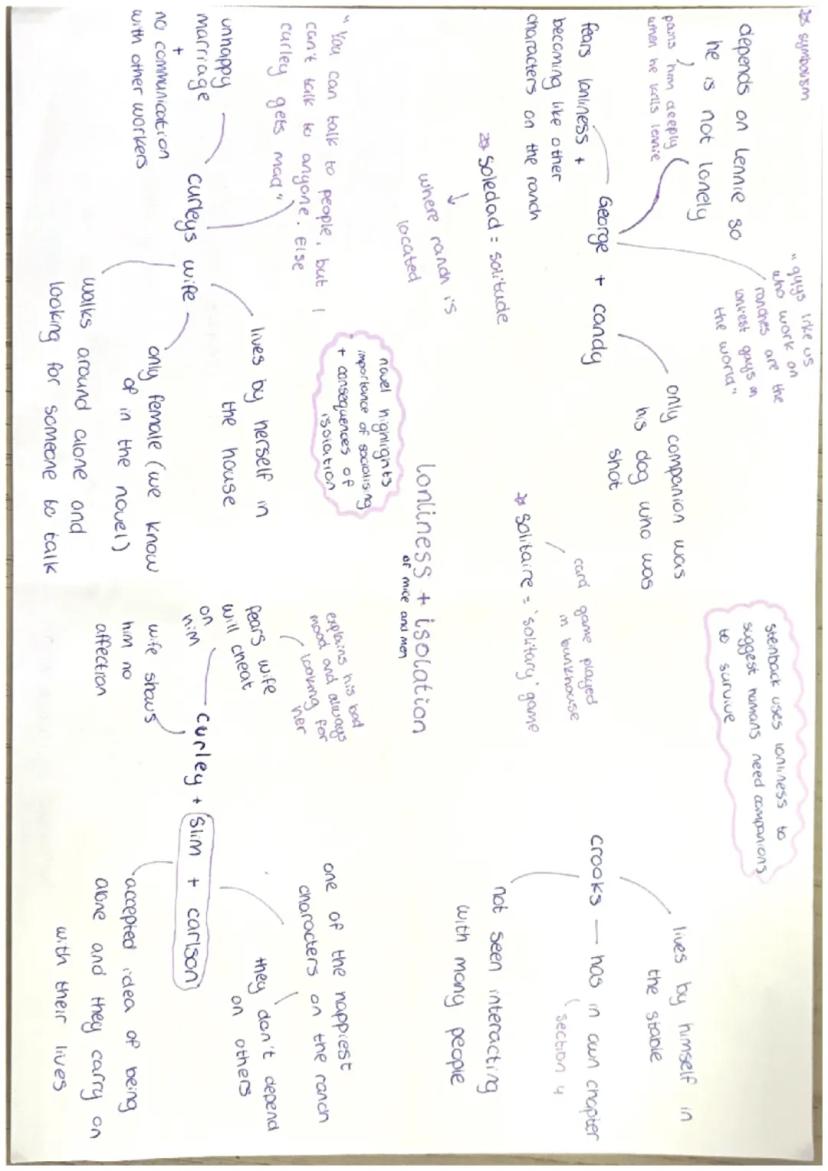 ✰ symbolism
depends on lennie so
he is not lonely
pains him deeply
when he kills lennie
fears lonliness +
becoming like other
characters on the ranch
George + candy
"guys like us
who work on
ranches are the
lonliest guys in
the world"
only companion was
his dog who was
shot
stenback uses lonliness to
suggest humans need companions
to survive
crooks — has in own chapter
section 4
lives by himself in
the stable
not seen interacting
with many people
✰ soledad = solitude
where ranch is
located
✰ solitaire = 'solitary' game
card game played
in bunkhouse
lonliness + isolation
of mice and men
novel highlights
importance of socialising
+ consequences of
isolation
"You can talk to people, but I
can't talk to anyone. Else
curley gets mad"
unhappy
marriage
+
no communication
with other workers
curleys wife
lives by herself in
the house
only female (we know
of in the novel)
walks around alone and
looking for someone to talk
explains his bad
mood and always
looking for
her
fears wife
will cheat
on
him
wife shows
him no
affection
curley + slim + carlson
one of the happiest
characters on the ranch
they don't depend
on others
accepted idea of being
alone and they carry on
with their lives